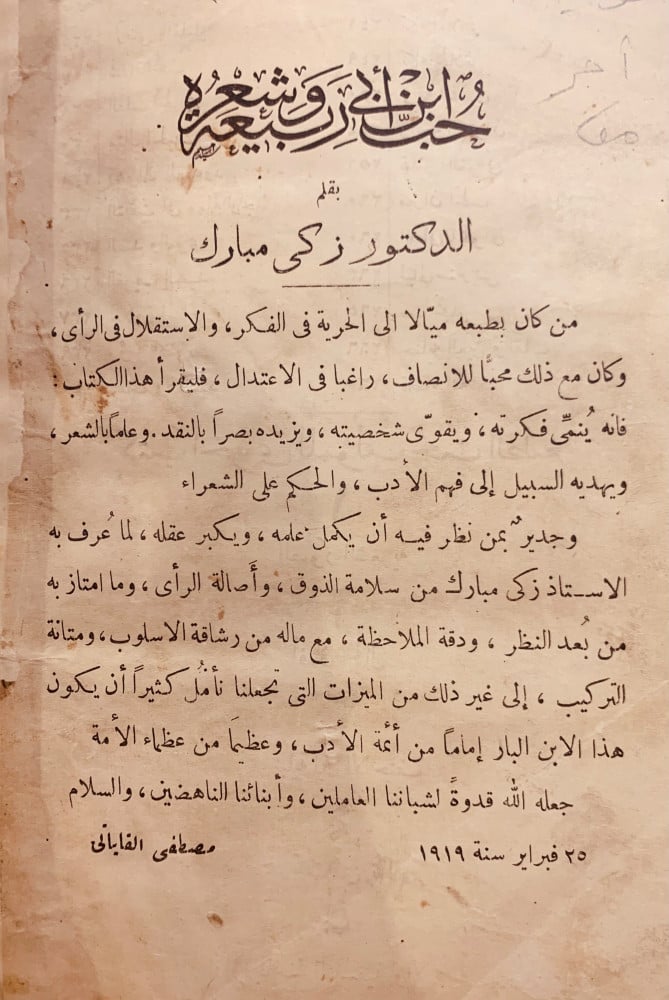 حب ابن أبي ربيعة وشعره
بقلم
الدكتور زكى مبارك
من كان بطبعه ميّالا الى الحرية فى الفكر، والاستقلال فى الرأى،
وكان مع ذلك محبًّا للانصاف، راغبا فى الاعتدال، فليقرأ هذا الكتاب:
فانه يُنمِّى فكرته، ويقوّى شخصيته، ويزيده بصراً بالنقد. وعلماً بالشعر،
ويهديه السبيل إلى فهم الأدب، والحكم على الشعراء
وجديرٌ بمن نظر فيه أن يكمل علمه، ويكبر عقله، لما عُرف به
الاستاذ زكى مبارك من سلامة الذوق، وأَصالة الرأى، وما امتاز به
من بُعد النظر، ودقة الملاحظة، مع ماله من رشاقة الاسلوب، ومتانة
التركيب، إلى غير ذلك من الميزات التى تجعلنا نأمُل كثيراً أن يكون
هذا الابن البار إماماً من أئمة الأدب، وعظيمَا من عظماء الأمة
جعله الله قدوةً لشباننا العاملين، وأبنائنا الناهضين، والسلام
٢٥ فبراير سنة ١٩١٩ مصطفى القاياتى